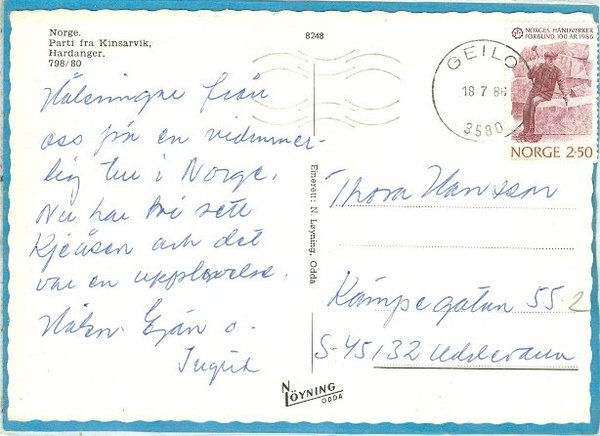 Norge.
Parti fra Kinsarvik,
Hardanger.
798/80
8248
NORGES HÅNDVERKER
FORBUND 100 ÅR 1986
NORGE 2·50
GEILO
18 7 86
3580
Hälsningar från
oss från en
lig tur i Norge.
Nu har vi sett
Kjeåsen och det
var en upplevelse.
Hälsn. o.
Ingrid
Enerett: N. Løyning, Odda
Thora Hansson
Kämpegatan 55 2
S-45132 Uddevalla
N LÖYNING
ODDA